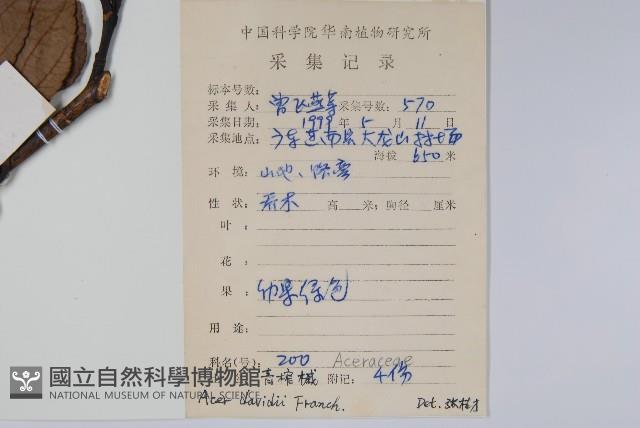 中国科学院华南植物研究所
采集记录
标本号数:
采集人: 曾飞燕等 采集号数: 570
采集日期: 1999 年 5 月 11 日
采集地点: 广东连南县大龙山林场
海拔 650 米
环境: 山地、
性状: 乔木 高 米; 胸径 厘米
叶:
花:
果: 幼果绿色
用途:
科名(号): 200 Aceraceae
青榨槭 附记: 4份
Acer davidii Franch. Det.
國立自然科學博物館
NATIONAL MUSEUM OF NATURAL SCIENCE